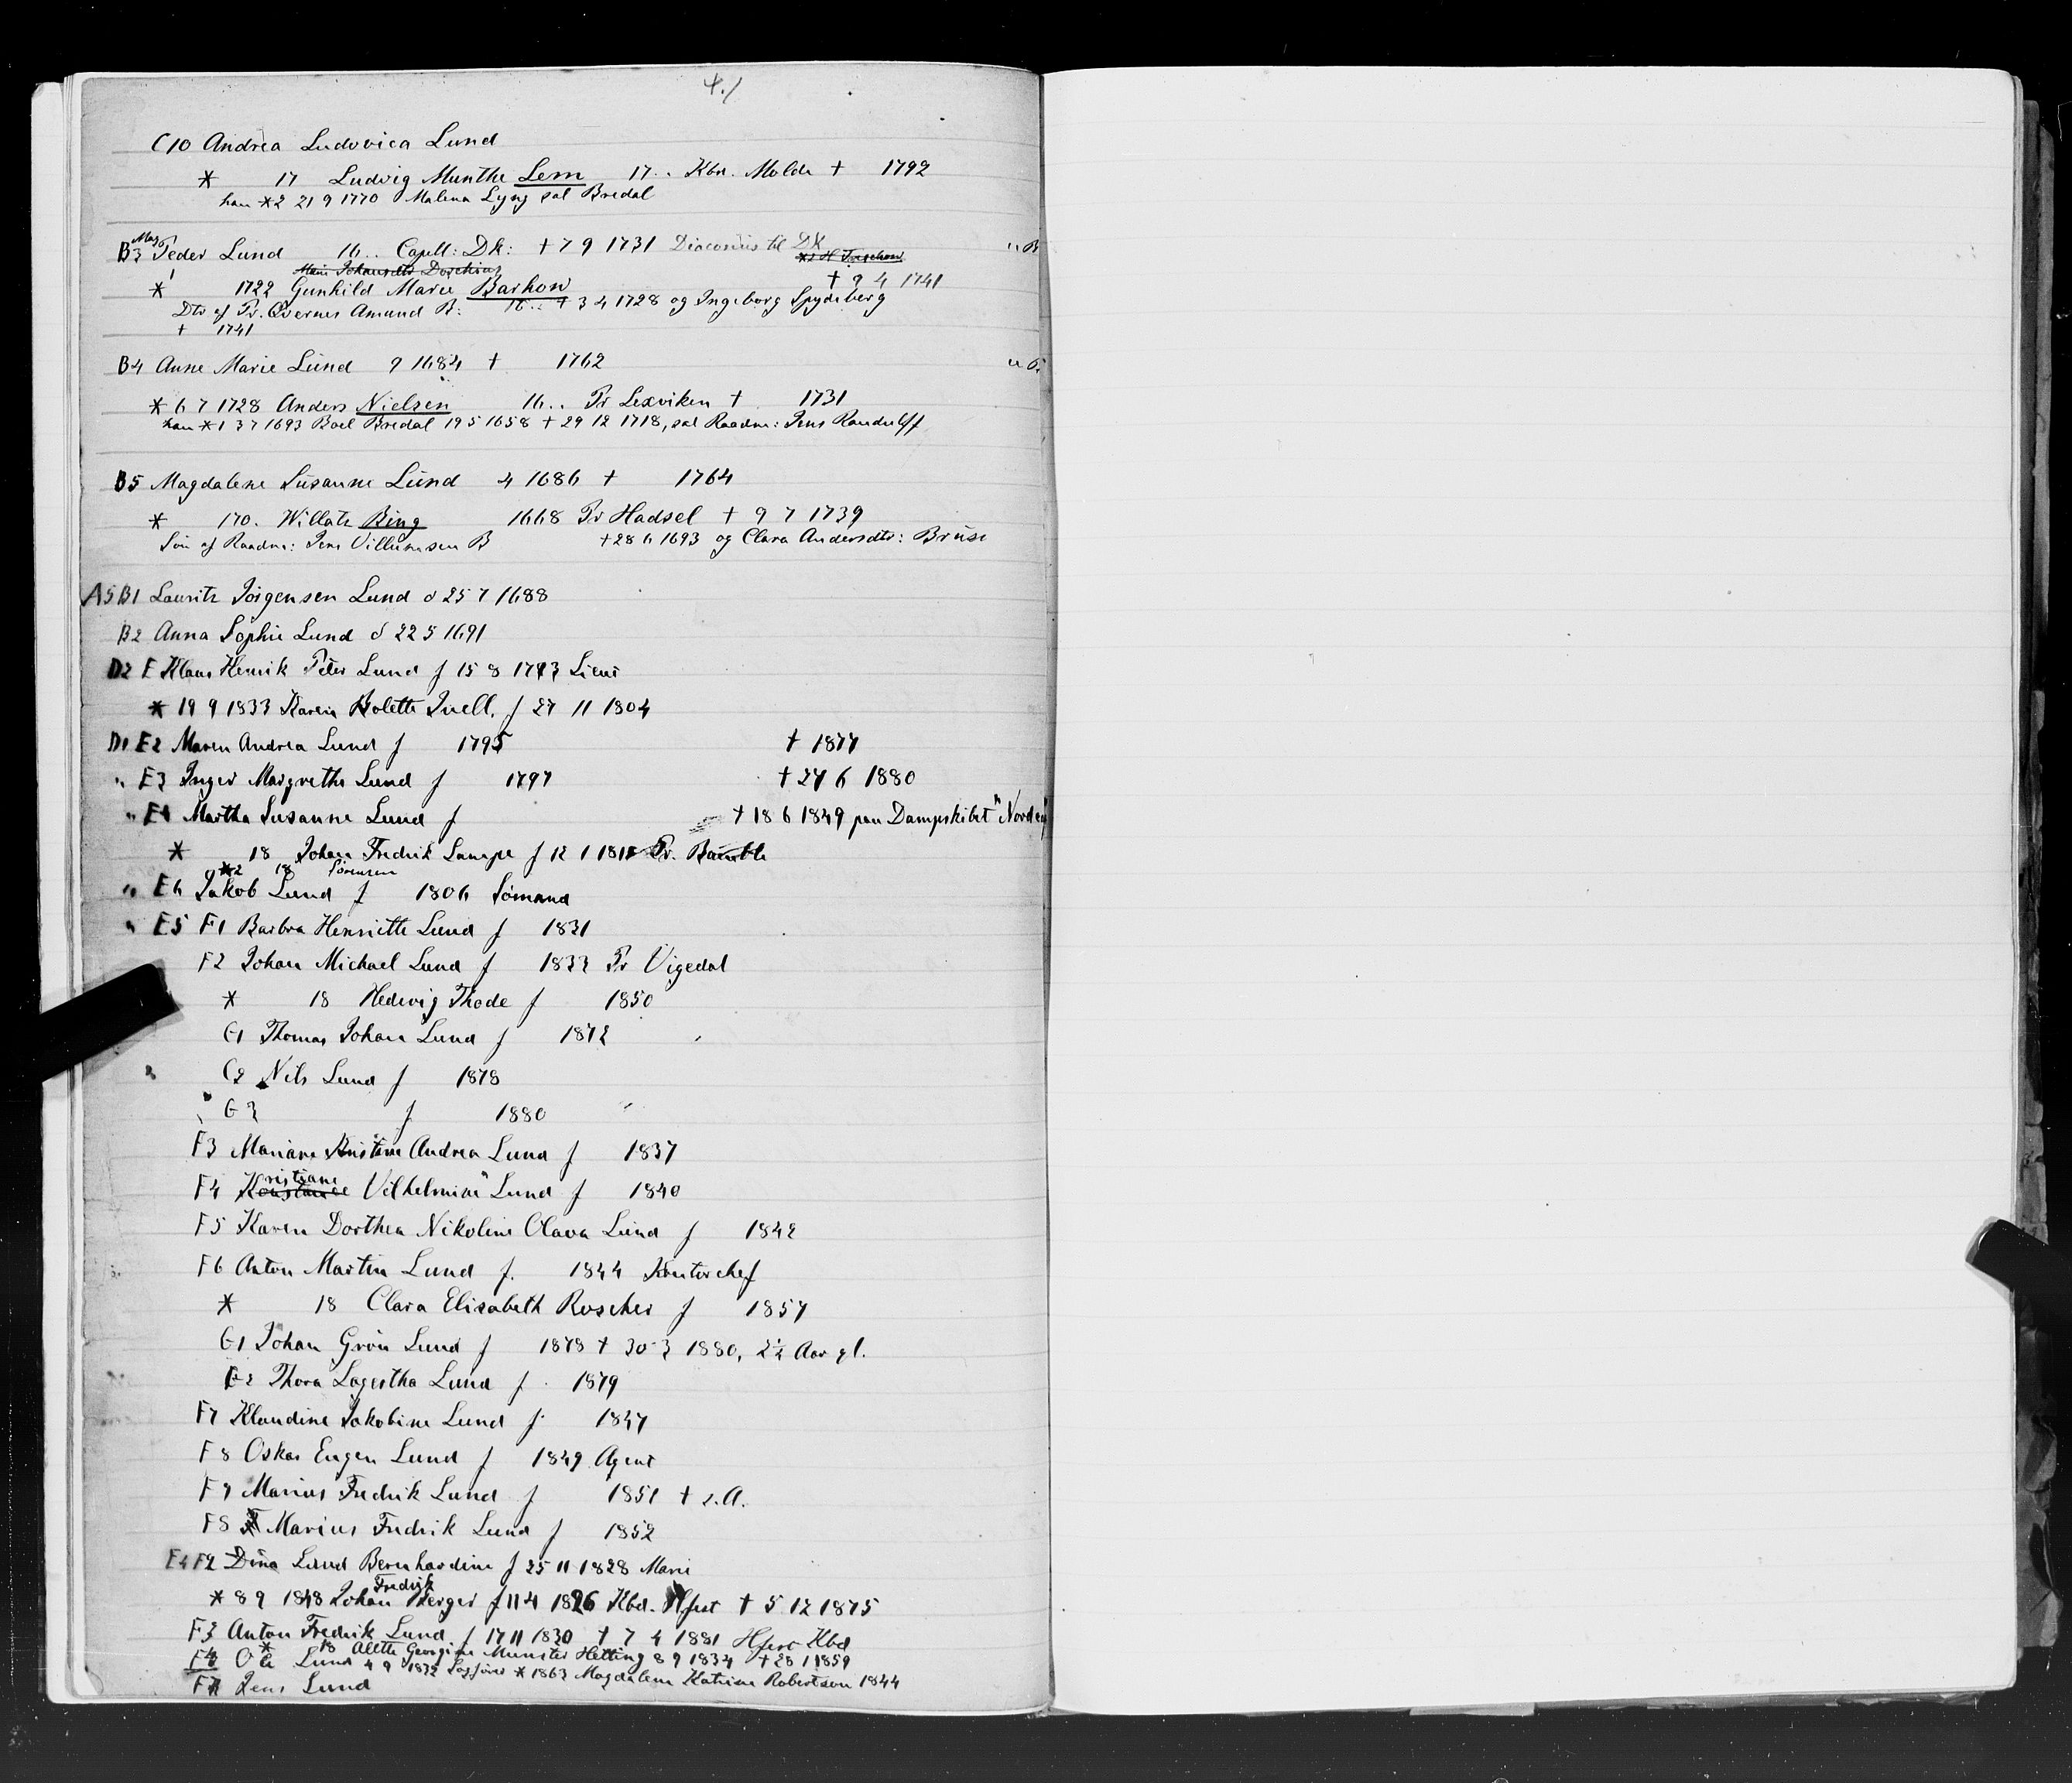 4.)
C10 Andrea Ludovica Lund
* 17 Ludvig Munthe Lem 17.. Kbn. Molde † 1792
han *2 21 9 1770 Malena Lyng sal Bredal
B3 Mag Peder Lund 16.. Capell: DK: † 7 9 1731 Diaconus til DK
Marie Johansdtr Dorchius
* 1722 Gunhild Marie Barhow † 9 4 1741
Dtr af Pr. Qvernes Amund B: 16.. † 3 4 1728 og Ingeborg Spydeberg
† 1741
B4 Anne Marie Lund 9 1684 † 1762
* 6 7 1728 Anders Nielsen 16.. Pr Lexviken † 1731
han *1 3 7 1693 Boel Bredal 19 5 1658 † 29 12 1718, sal Raadm: Jens Randulff
B5 Magdalene Susanne Lund 4 1686 † 1764
* 170. Willatz Bing 1668 Pr Hadsel † 9 7 1739
Søn af Raadm: Jens Villumsen B † 28 6 1693 og Clara Andersdtr: Bruse
A5 B1 Lauritz Jørgensen Lund d 25 7 1688
B2 Anna Sophie Lund d 22 5 1691
D2 E Klaus Henrik Peter Lund f 15 8 1793 Lieut
* 19 9 1833 Karen Bolette Quell. f 27 11 1804
D1 E2 Maren Andrea Lund f 1795 † 1877
" E3 Inger Margrethe Lund f 1797 † 27 6 1880
" E4 Martha Susanne Lund f † 18 6 1849 paa Dampskibet "Norden"
* 18 Johan Fredrik Lampe f 12 1 1818 Pr. Bamble
*2 18 Sørensen
" E6 Jakob Lund f 1806 Sømand
" E5 F1 Barbra Henriette Lund f 1831
F2 Johan Michael Lund f 1833 Pr Vigedal
* 18 Hedevig Thode f 1850
G1 Thomas Johan Lund f 1872
G2 Nils Lund f 1878
G3 f 1880
F3 Mariane Kristine Andrea Lund f 1837
F4 Kristiane Vilhelmine Lund f 1840
F5 Karen Dorthea Nikoline Olava Lund f 1842
F6 Anton Martin Lund f. 1844 Kontorchef
* 18 Clara Elisabeth Roscher f 1857
G1 Johan Grøn Lund f 1878 † 30 3 1880, 2½ Aar gl.
G2 Thora Lagertha Lund f. 1879
F7 Klaudine Jakobine Lund f. 1847
F8 Oskar Eugen Lund f 1849 Agent
F9 Marius Fredrik Lund f 1851 † s.A.
F8 Marius Fredrik Lund f 1852
E4 F2 Dina Lund Bernhardine f 25 11 1828 Marie
* 8 9 1848 Johan Fredrik Berger f 11 4 1826 Kbd. Hfest † 5 12 1875
F3 Anton Fredrik Lund f 17 11 1830 † 7 4 1881 Hfest Kbd
* 18 Alette Georgine Munster Hetting 8 9 1834 † 28 1 1859
F4 Ole Lund 4 9 1832 Sagfører * 1863 Magdalena Katrine Robertson 1844
F7 Jens Lund